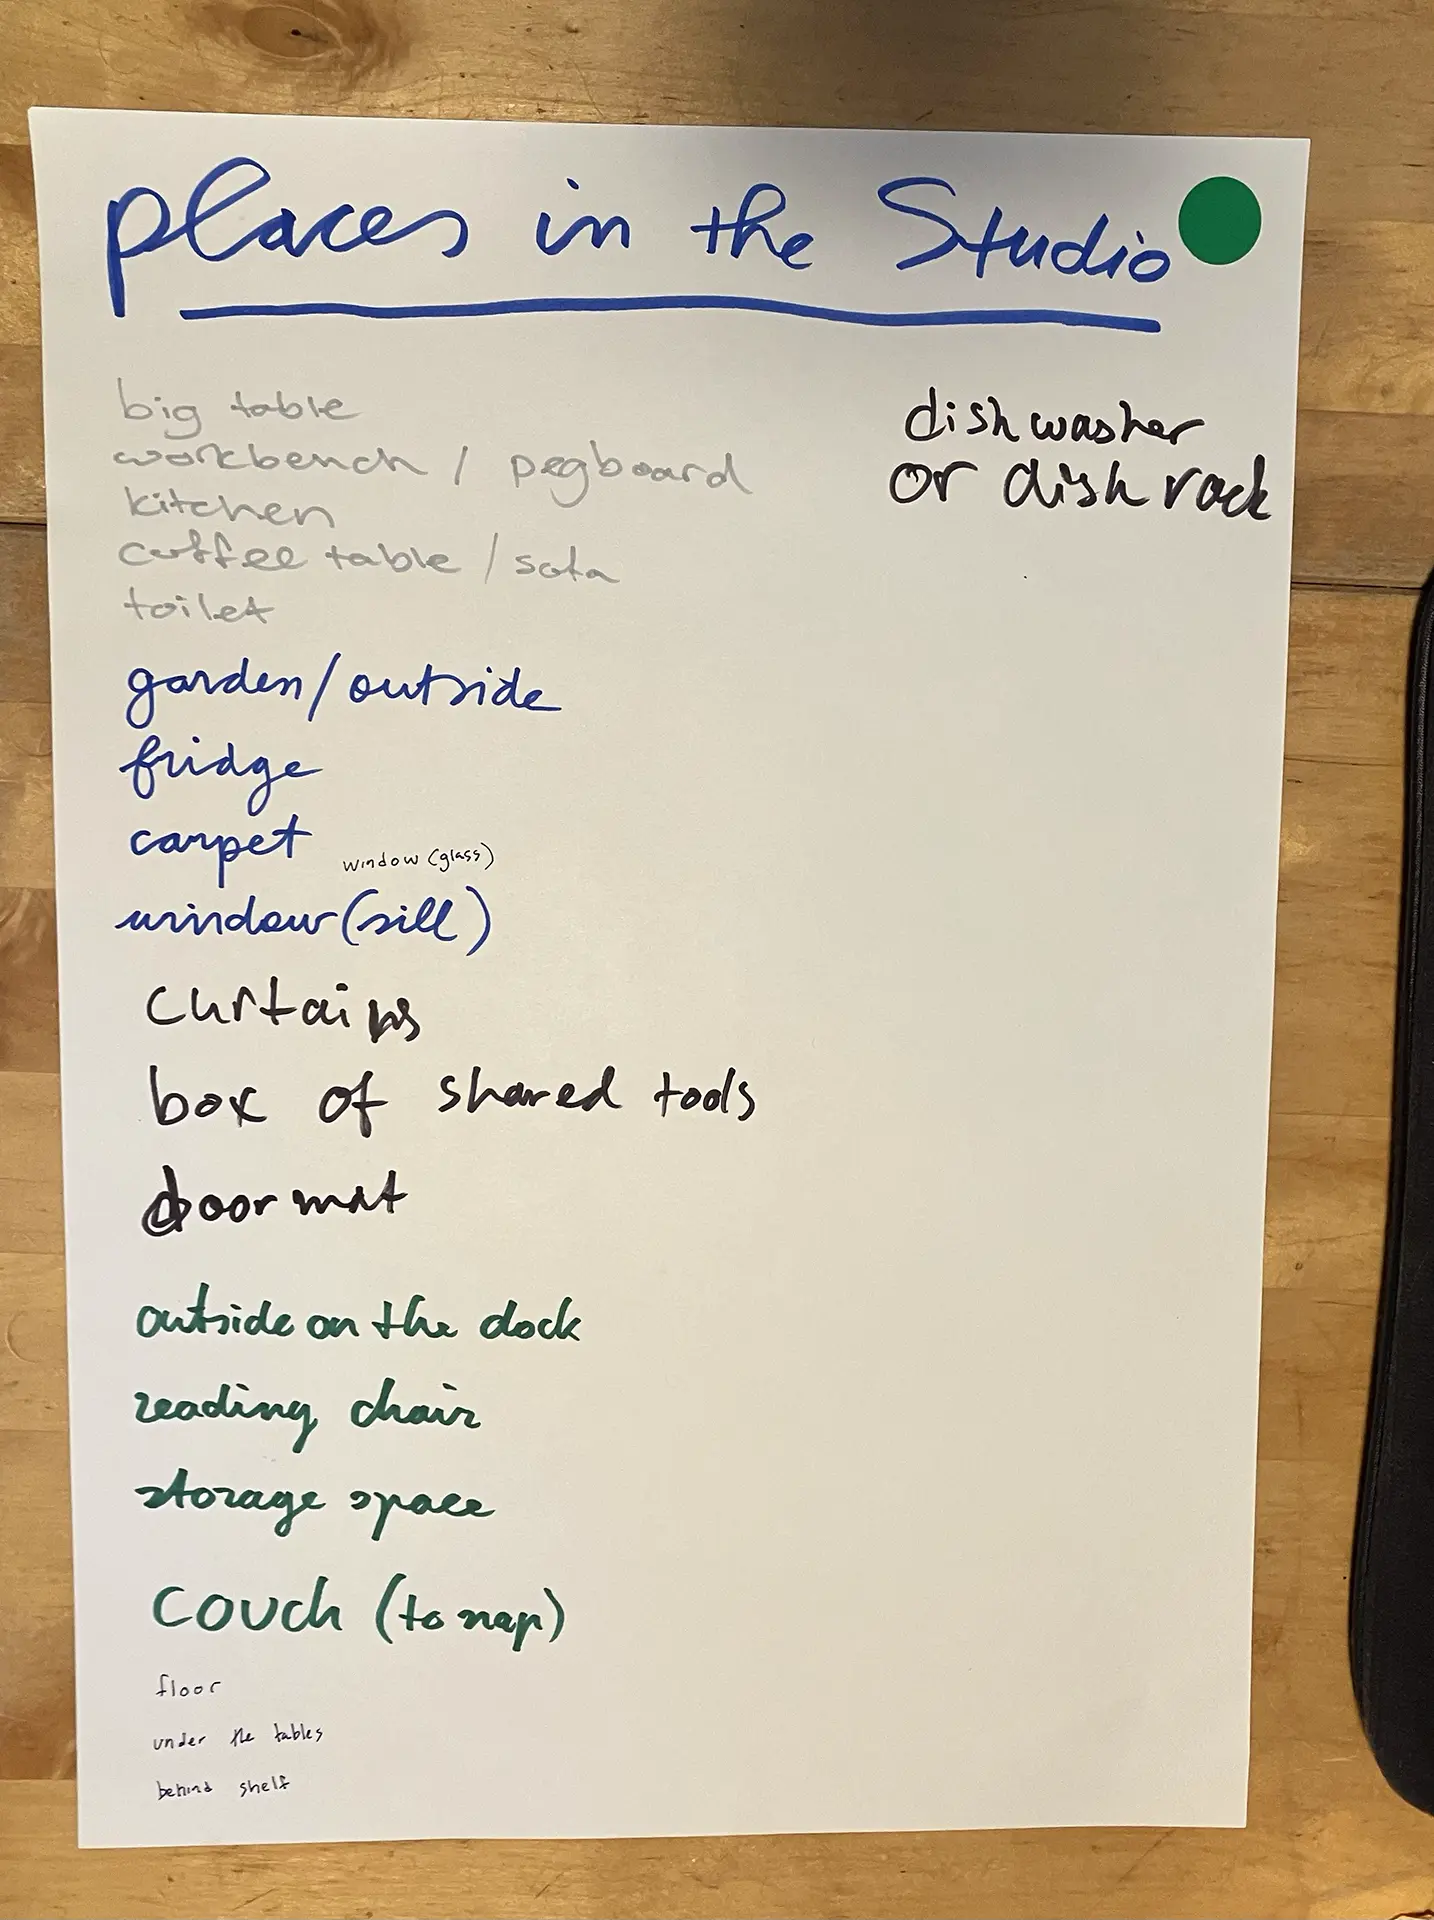 places in the Studio
big table
workbench / pegboard
kitchen
coffee table / sofa
toilet
garden/outside
fridge
carpet
window (glass)
window (sill)
curtains
box of shared tools
doormat
outside on the dock
reading chair
storage space
couch (to nap)
floor
under the tables
behind shelf
dishwasher
or dish rack